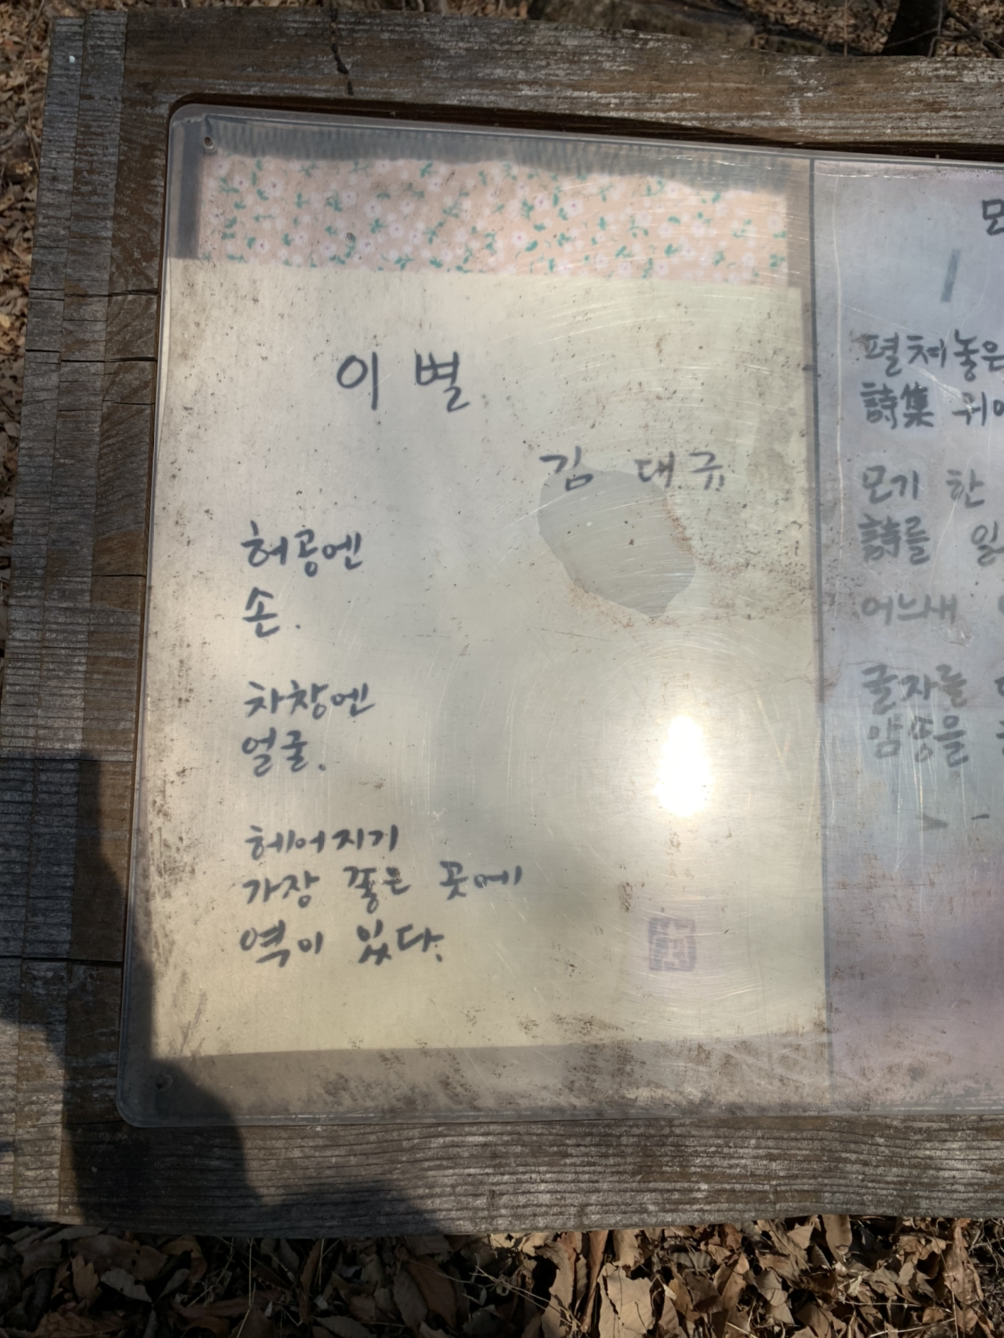 이 별
김 대규
허공엔
손.
차창엔
얼굴.
헤어지기
가장 좋은 곳에
역이 있다.
펼쳐놓은
詩集 위에
모기 한
詩를
어느새
글자를